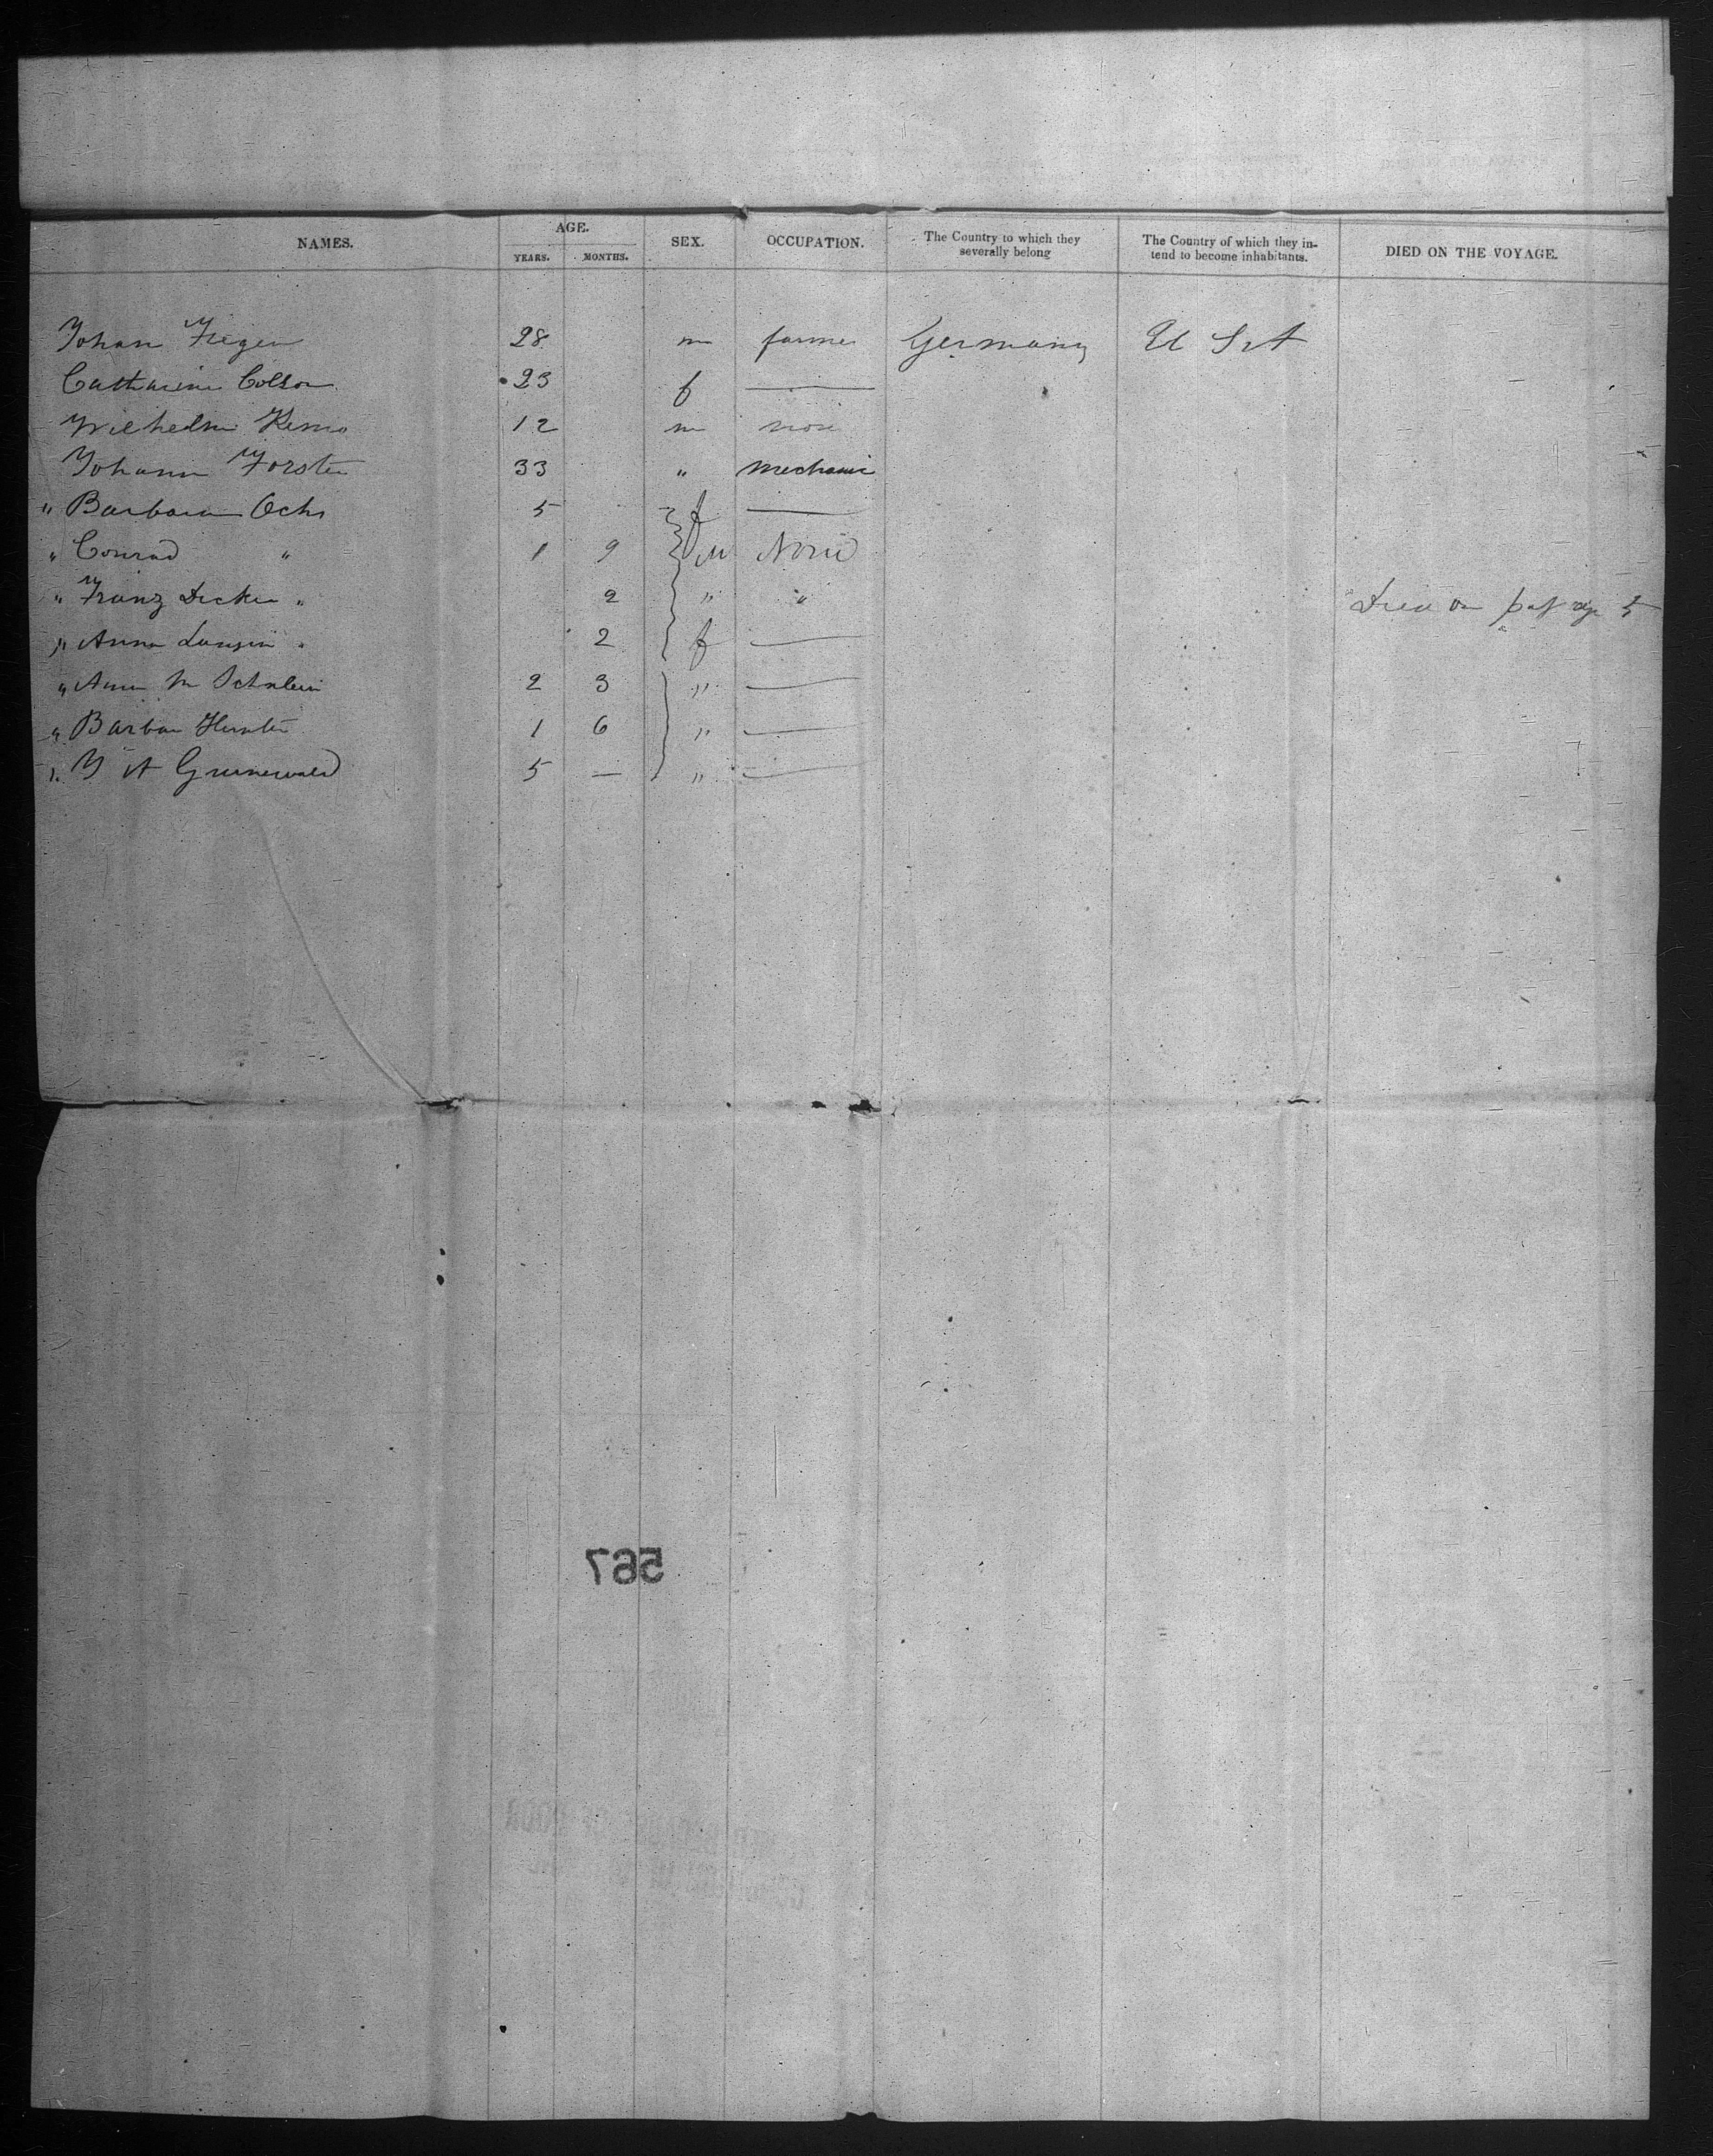 NAMES. AGE. YEARS. MONTHS. SEX. OCCUPATION. The Country to which they severally belong The Country of which they in-tend to become inhabitants. DIED ON THE VOYAGE.
Johan 28 m farmer Germany U S A
Catharine Colson 23 f
Wilhelm 12 m none
Johann Forster 33 " mechanic
" Barbara Ochs 5 f
" Conrad " 1 9 M None
" Franz Decker " 2 " " Died on passage 5
" Anna " 2 f
" Ann M 2 3 "
" Barbara 1 6 "
" Grunewald 5 — "
567